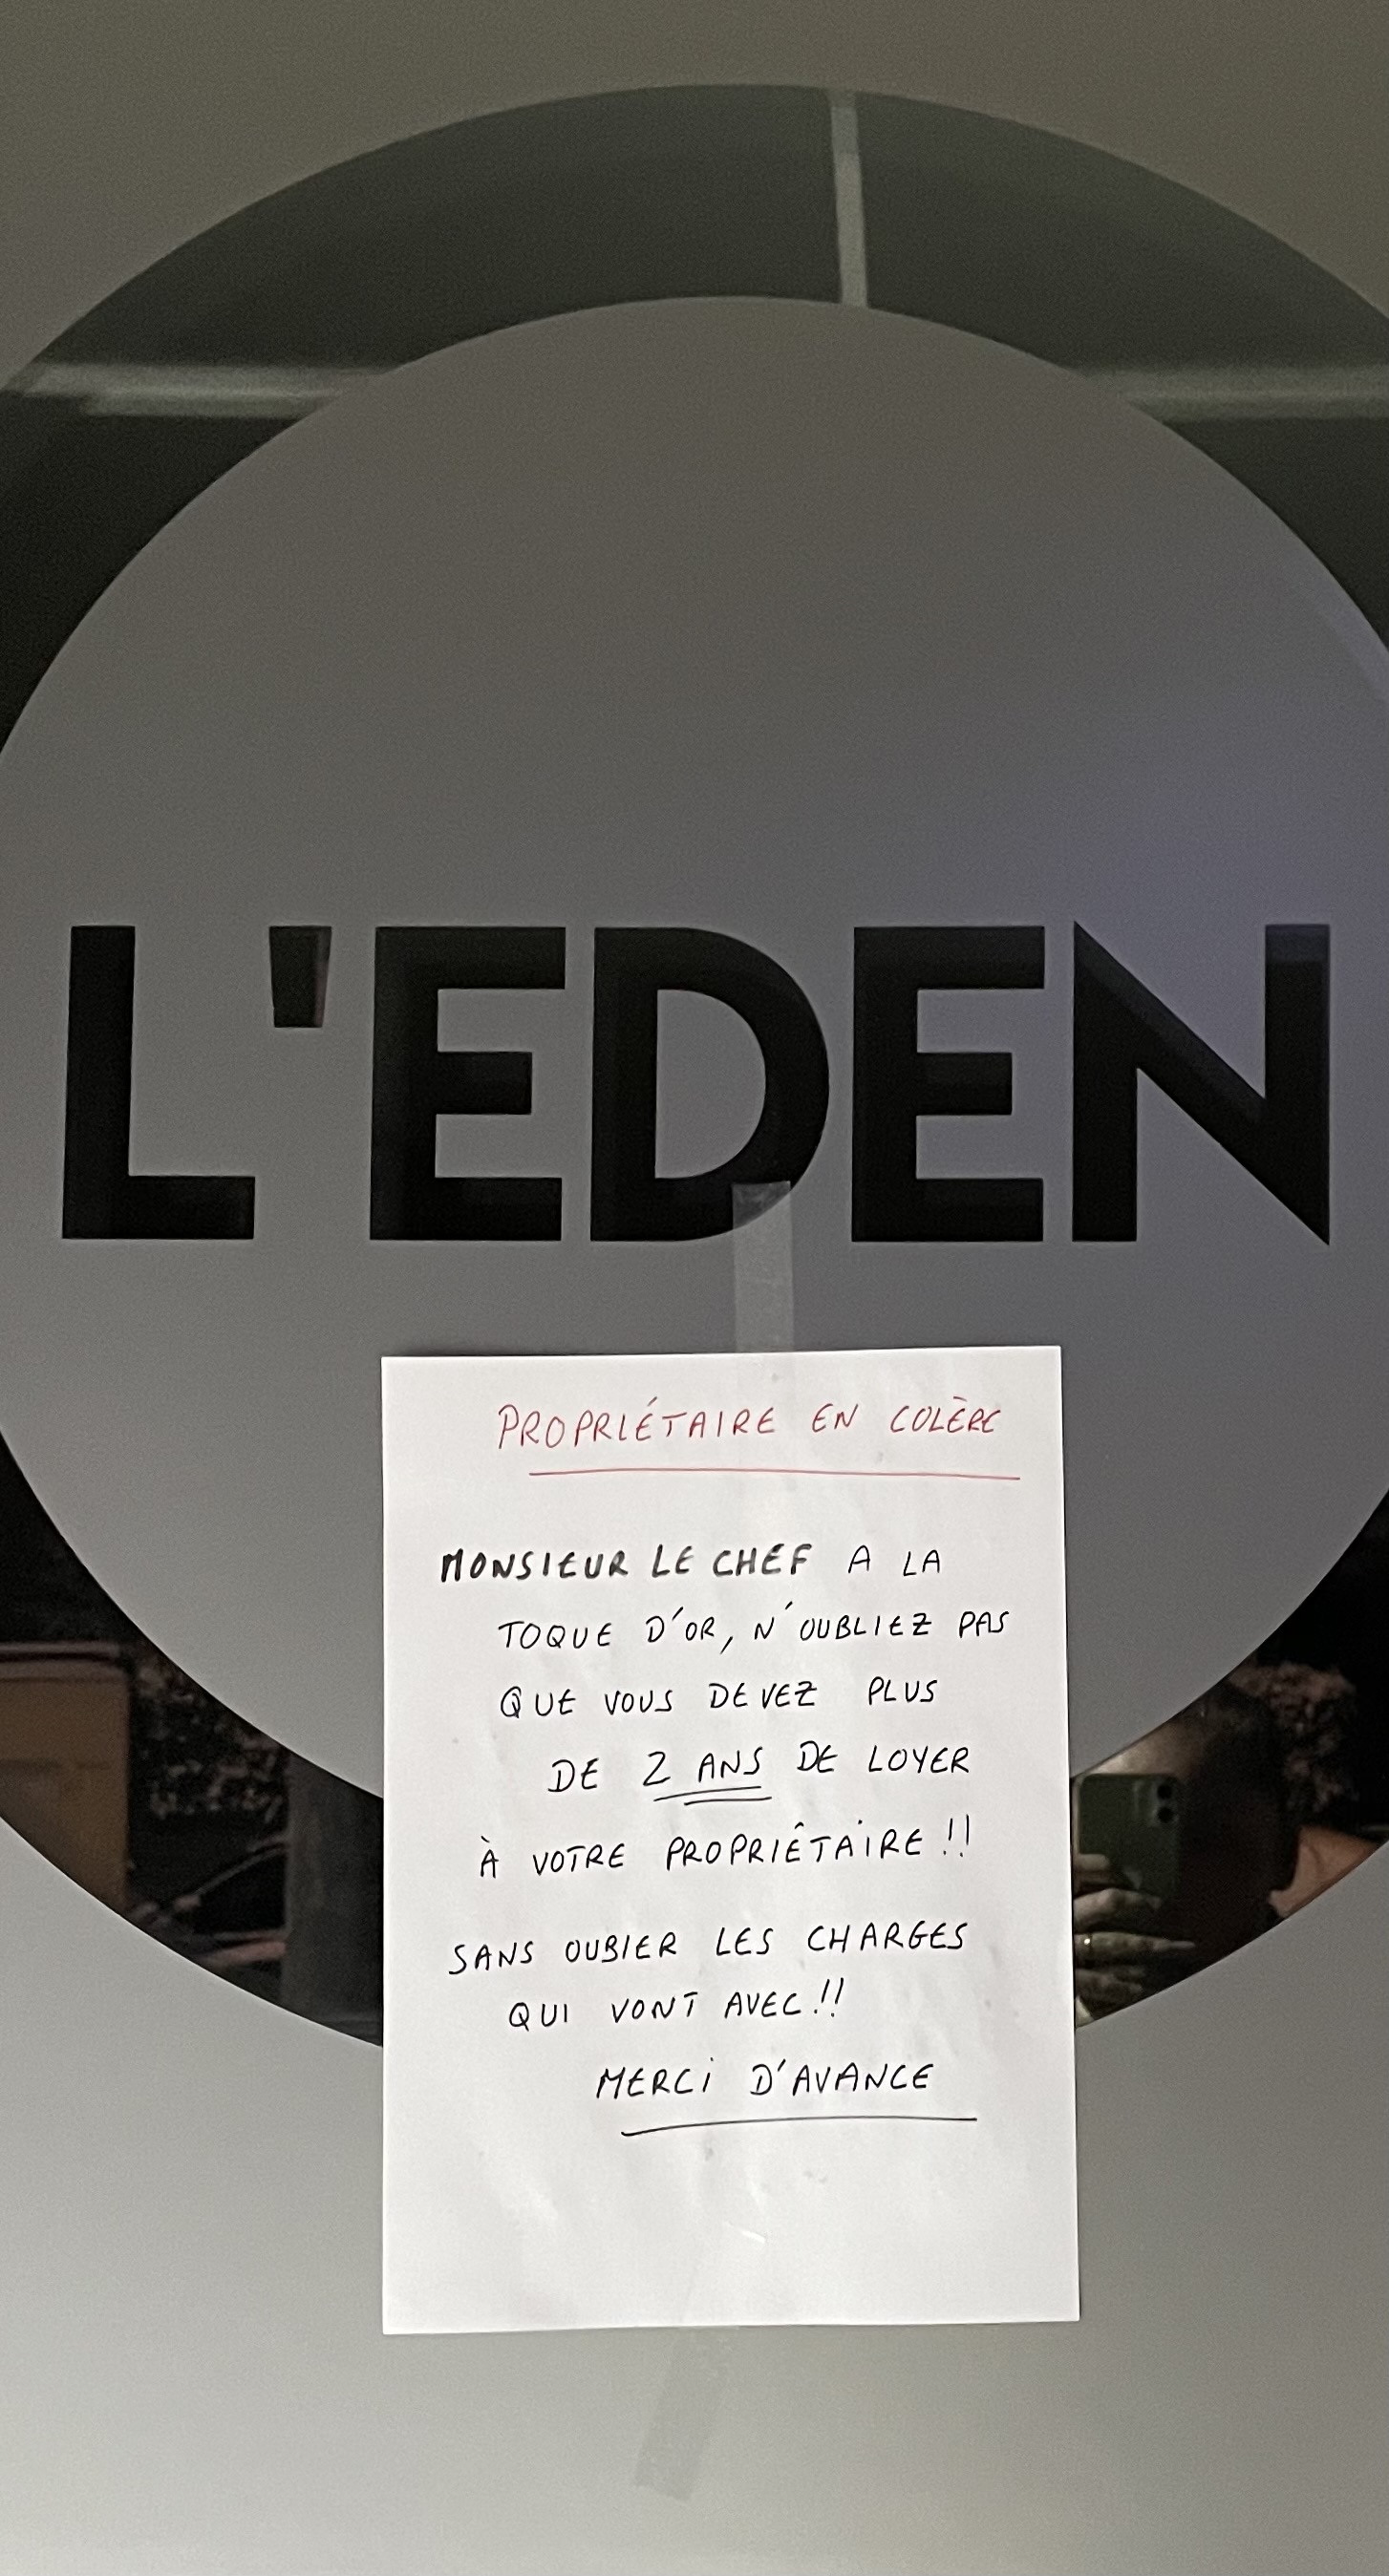 L'EDEN
PROPRIÉTAIRE EN COLÈRE
MONSIEUR LE CHEF A LA
TOQUE D'OR, N'OUBLIEZ PAS
QUE VOUS DEVEZ PLUS
DE 2 ANS DE LOYER
À VOTRE PROPRIÉTAIRE !!
SANS OUBIER LES CHARGES
QUI VONT AVEC !!
MERCI D'AVANCE